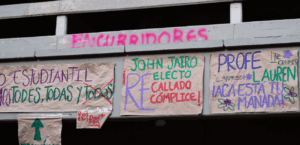 ENCUBRIDORES
O ESTUDIANTIL
TODES, TODAS Y TODOS
JOHN JAIRO
RE ELECTO
CALLADO
¡CÓMPLICE!
PROFE
LAUREN
¡ACÁ ESTÁ TU
MANADA!